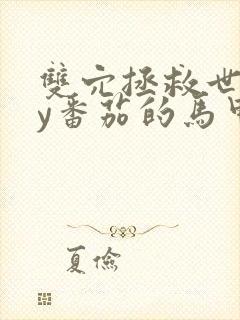 雙穴拯救世
y番茄的馬甲
夏儉